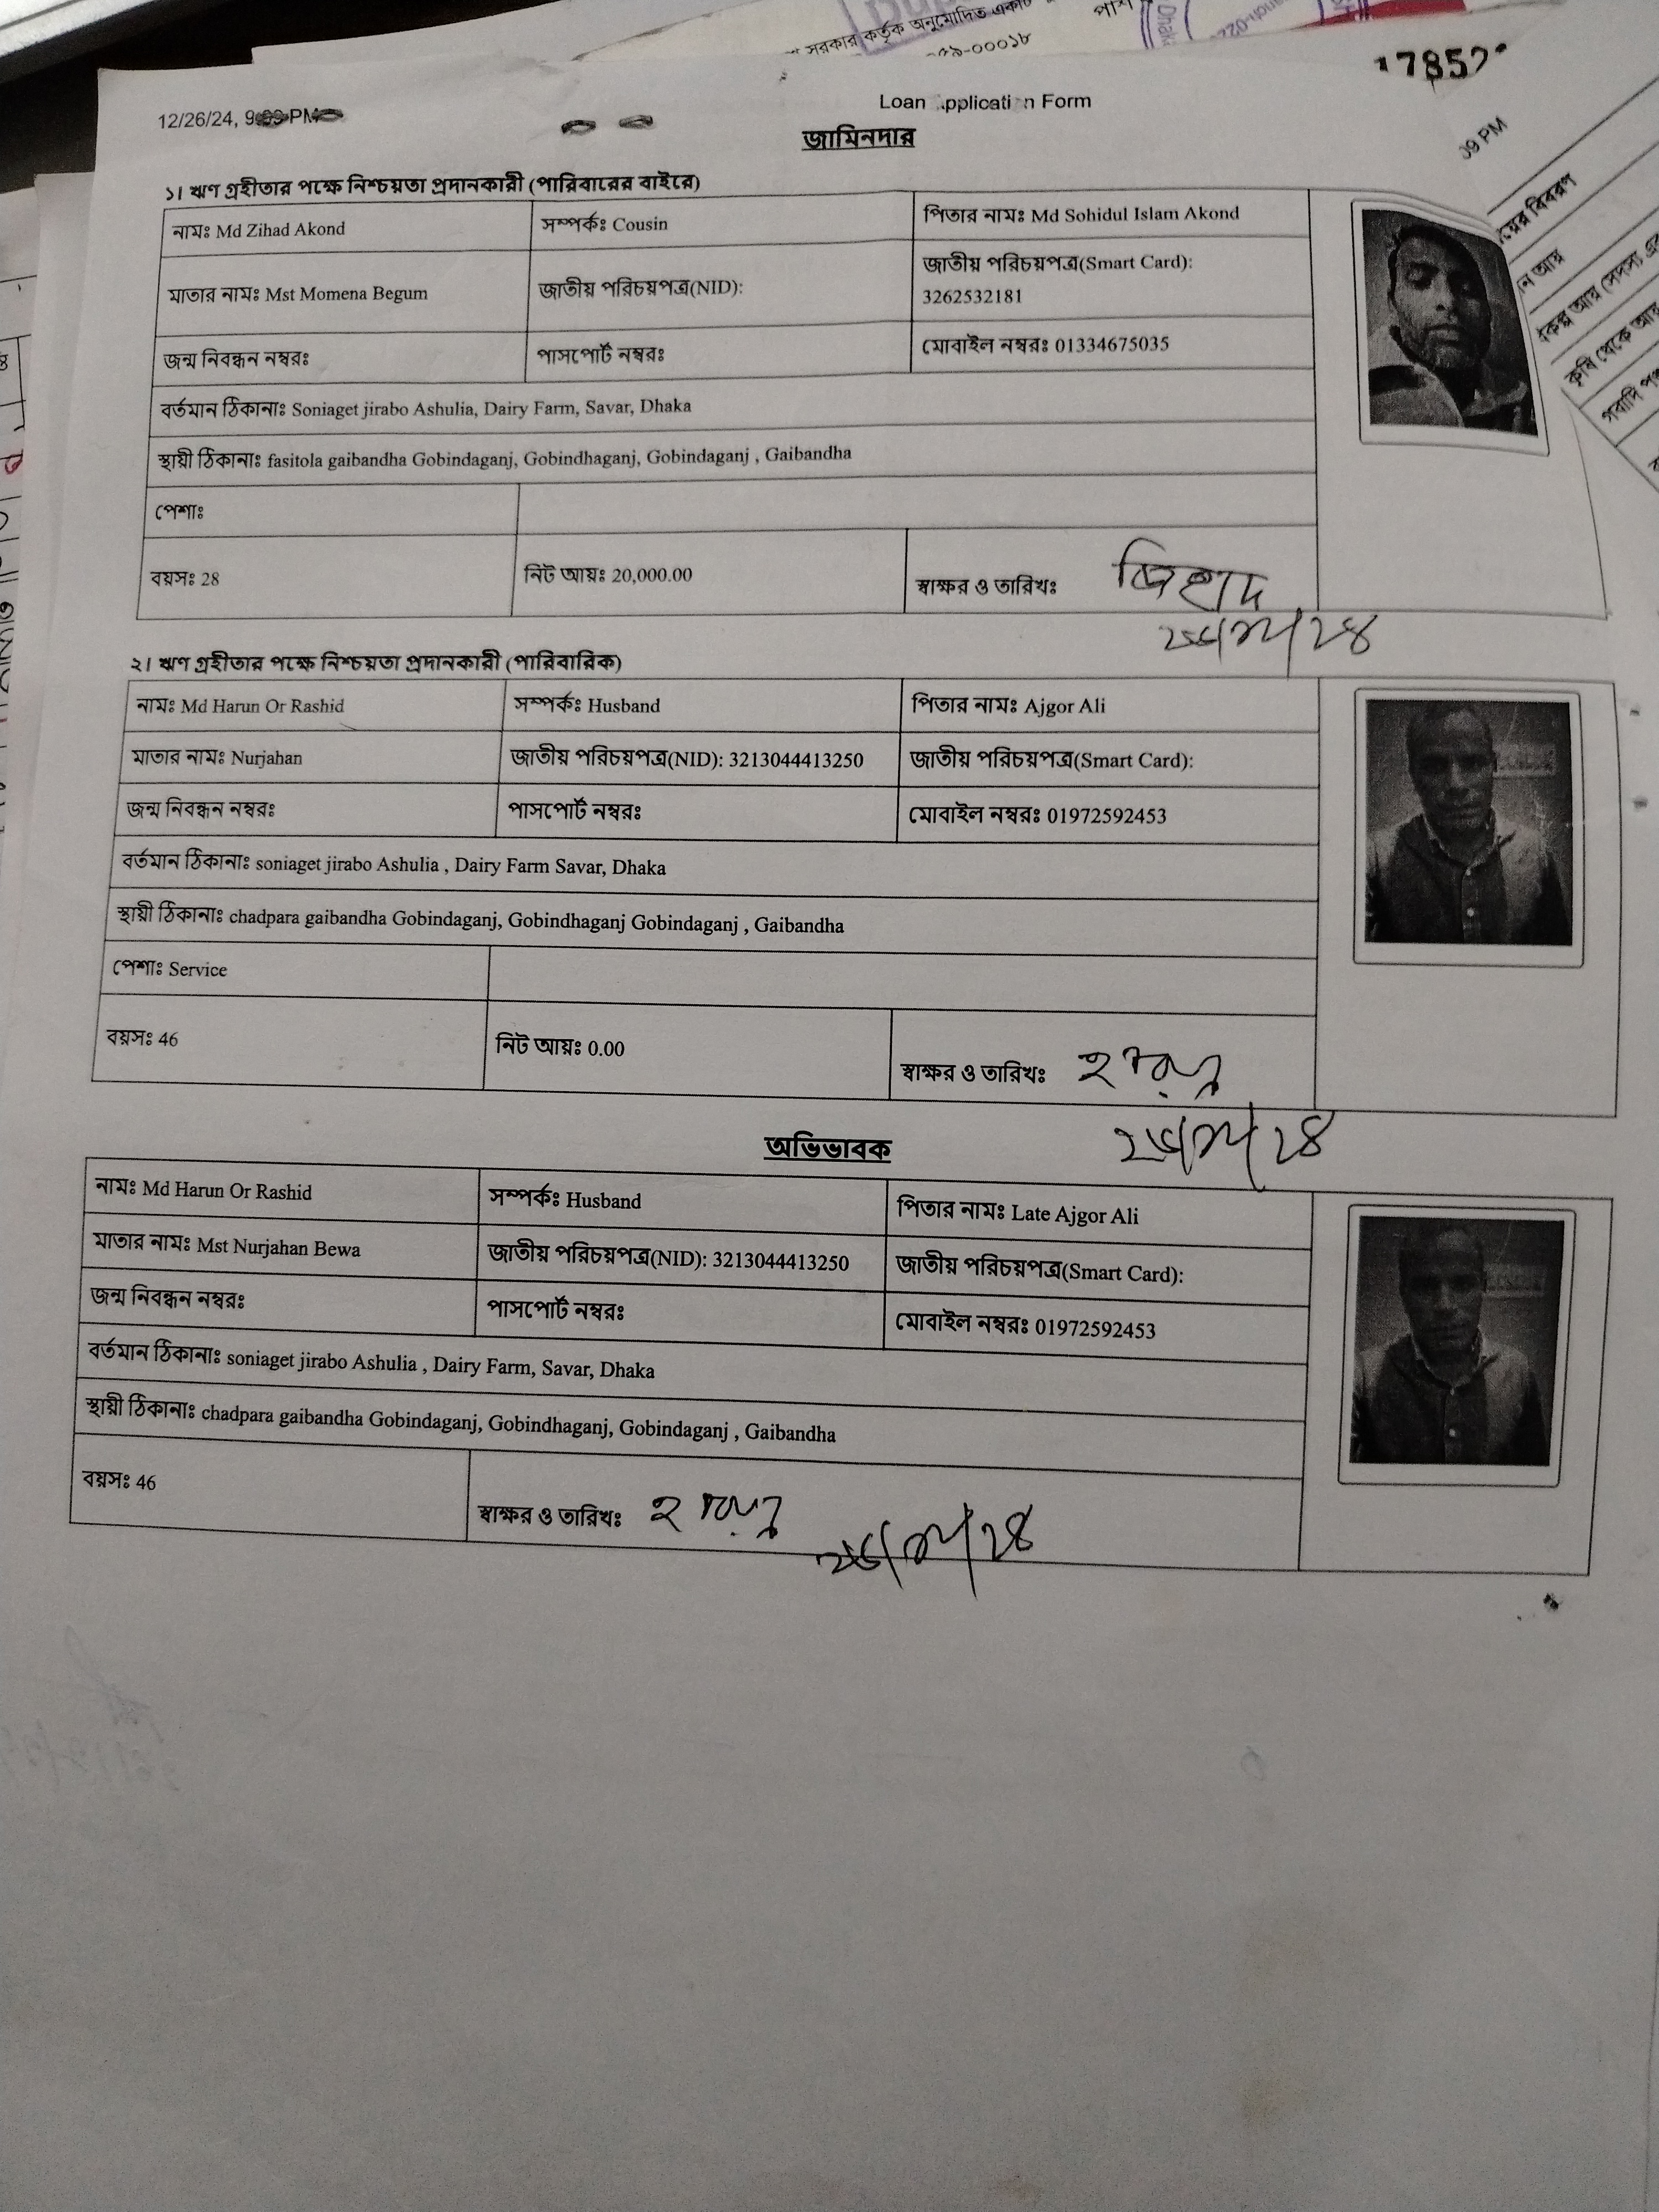 সরকার কর্তৃক অনুমোদিত
12/26/24,
Loan Form
জামিনদার
১। ঋণ গ্রহীতার পক্ষে নিশ্চয়তা প্রদানকারী (পারিবারের বাইরে)
নামঃ Md Zihad Akond সম্পর্কঃ Cousin পিতার নামঃ Md Sohidul Islam Akond
মাতার নামঃ Mst Momena Begum জাতীয় পরিচয়পত্র(NID): জাতীয় পরিচয়পত্র(Smart Card):
3262532181
জন্ম নিবন্ধন নম্বরঃ পাসপোর্ট নম্বরঃ মোবাইল নম্বরঃ 01334675035
বর্তমান ঠিকানাঃ Soniaget jirabo Ashulia, Dairy Farm, Savar, Dhaka
স্থায়ী ঠিকানাঃ fasitola gaibandha Gobindaganj, Gobindhaganj, Gobindaganj , Gaibandha
পেশাঃ
বয়সঃ 28 নিট আয়ঃ 20,000.00 স্বাক্ষর ও তারিখঃ জিহাদ
২। ঋণ গ্রহীতার পক্ষে নিশ্চয়তা প্রদানকারী (পারিবারিক)
নামঃ Md Harun Or Rashid সম্পর্কঃ Husband পিতার নামঃ Ajgor Ali
মাতার নামঃ Nurjahan জাতীয় পরিচয়পত্র(NID): 3213044413250 জাতীয় পরিচয়পত্র(Smart Card):
জন্ম নিবন্ধন নম্বরঃ পাসপোর্ট নম্বরঃ মোবাইল নম্বরঃ 01972592453
বর্তমান ঠিকানাঃ soniaget jirabo Ashulia , Dairy Farm Savar, Dhaka
স্থায়ী ঠিকানাঃ chadpara gaibandha Gobindaganj, Gobindhaganj Gobindaganj , Gaibandha
পেশাঃ Service
বয়সঃ 46 নিট আয়ঃ 0.00 স্বাক্ষর ও তারিখঃ
অভিভাবক
নামঃ Md Harun Or Rashid সম্পর্কঃ Husband পিতার নামঃ Late Ajgor Ali
মাতার নামঃ Mst Nurjahan Bewa জাতীয় পরিচয়পত্র(NID): 3213044413250 জাতীয় পরিচয়পত্র(Smart Card):
জন্ম নিবন্ধন নম্বরঃ পাসপোর্ট নম্বরঃ মোবাইল নম্বরঃ 01972592453
বর্তমান ঠিকানাঃ soniaget jirabo Ashulia , Dairy Farm, Savar, Dhaka
স্থায়ী ঠিকানাঃ chadpara gaibandha Gobindaganj, Gobindhaganj, Gobindaganj , Gaibandha
বয়সঃ 46 স্বাক্ষর ও তারিখঃ